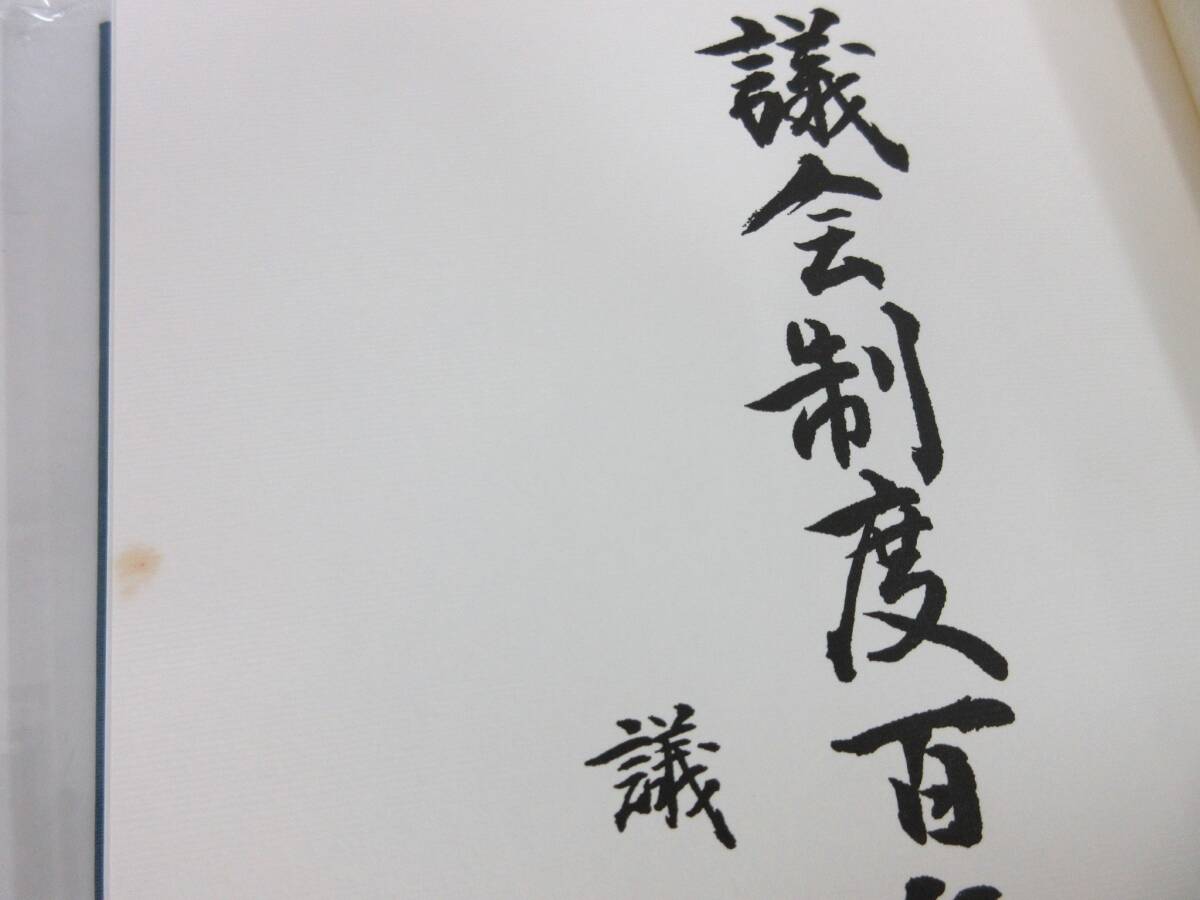 議会制度百
議